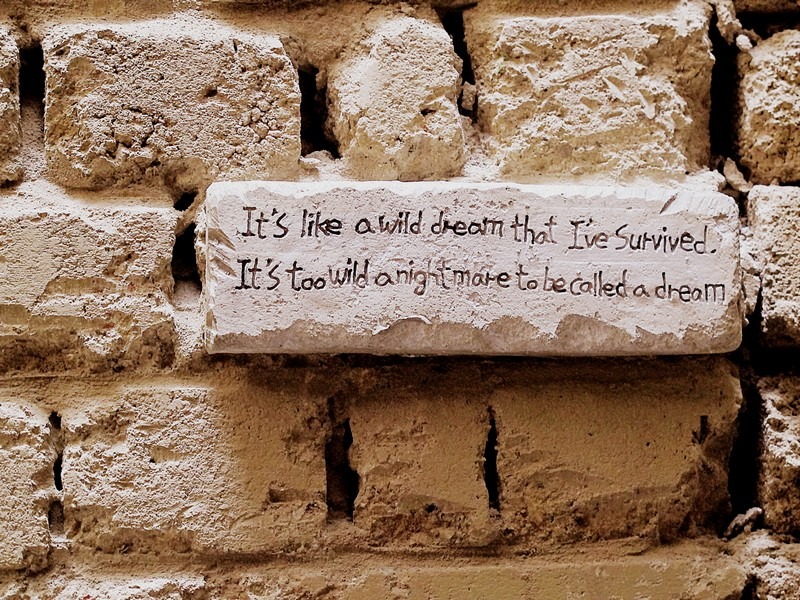 It's like a wild dream that I've Survived.
It's too wild a nightmare to be called a dream